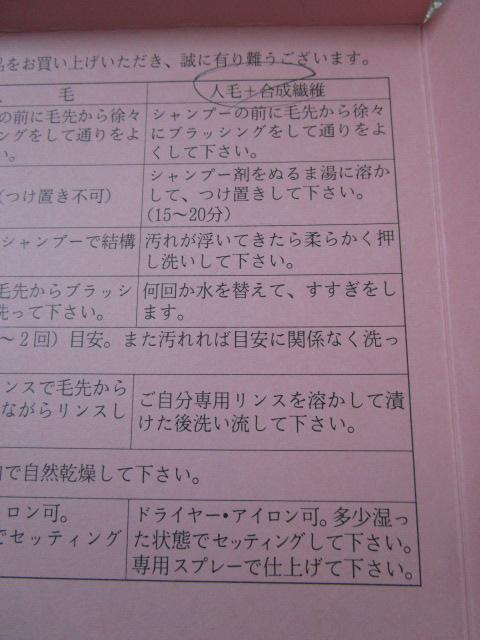 品をお買い上げいただき、誠に有り難うございます。
毛
人毛＋合成繊維
の前に毛先から徐々
ングをして通りをよ
い。
シャンプーの前に毛先から徐々
にブラッシングをして通りをよ
くして下さい。
(つけ置き不可)
シャンプー剤をぬるま湯に溶か
して、つけ置きして下さい。
(15〜20分)
シャンプーで結構
汚れが浮いてきたら柔らかく押
し洗いして下さい。
毛先からブラッシ
洗って下さい。
何回か水を替えて、すすぎをし
ます。
〜2回)目安。また汚れれば目安に関係なく洗っ
ンスで毛先から
ながらリンスし
ご自分専用リンスを溶かして漬
けた後洗い流して下さい。
で自然乾燥して下さい。
イロン可。
でセッティング
ドライヤー・アイロン可。多少湿っ
た状態でセッティングして下さい。
専用スプレーで仕上げて下さい。